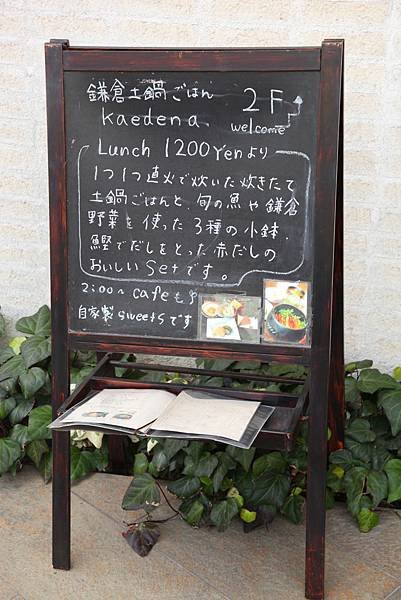 鎌倉土鍋ごはん
2F
Kaedena.
welcome
Lunch 1200Yenより
1つ1つ直火で炊いた炊きたて
土鍋ごはんと、旬の魚や鎌倉
野菜を使った3種の小鉢.
鰹でだしをとった赤だしの
おいしいSetです。
2:00~ cafeも
自家製sweetsです